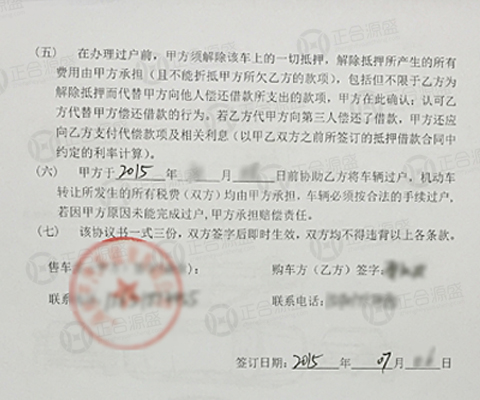 （五） 在办理过户前，甲方须解除该车上的一切抵押，解除抵押所产生的所有
费用由甲方承担（且不能折抵甲方所欠乙方的款项），包括但不限于乙方为
解除抵押而代替甲方向他人偿还借款所支出的款项，甲方在此确认：认可乙
方代替甲方偿还借款的行为。若乙方代甲方向第三人偿还了借款，甲方还应
向乙方支付代偿款项及相关利息（以甲乙双方之前所签订的抵押借款合同中
约定的利率计算）。
（六） 甲方于 2015 年 月 日前协助乙方将车辆过户。机动车
转让所发生的所有税费（双方）均由甲方承担。车辆必须按合法的手续过户，
若因甲方原因未能完成过户，甲方承担赔偿责任。
（七） 该协议书一式三份，双方签字后即时生效，双方均不得违背以上各条款。
售车 ）：
购车方（乙方）签字：
联系
联系电话：
签订日期：2015 年 07 月 日
正合源盛